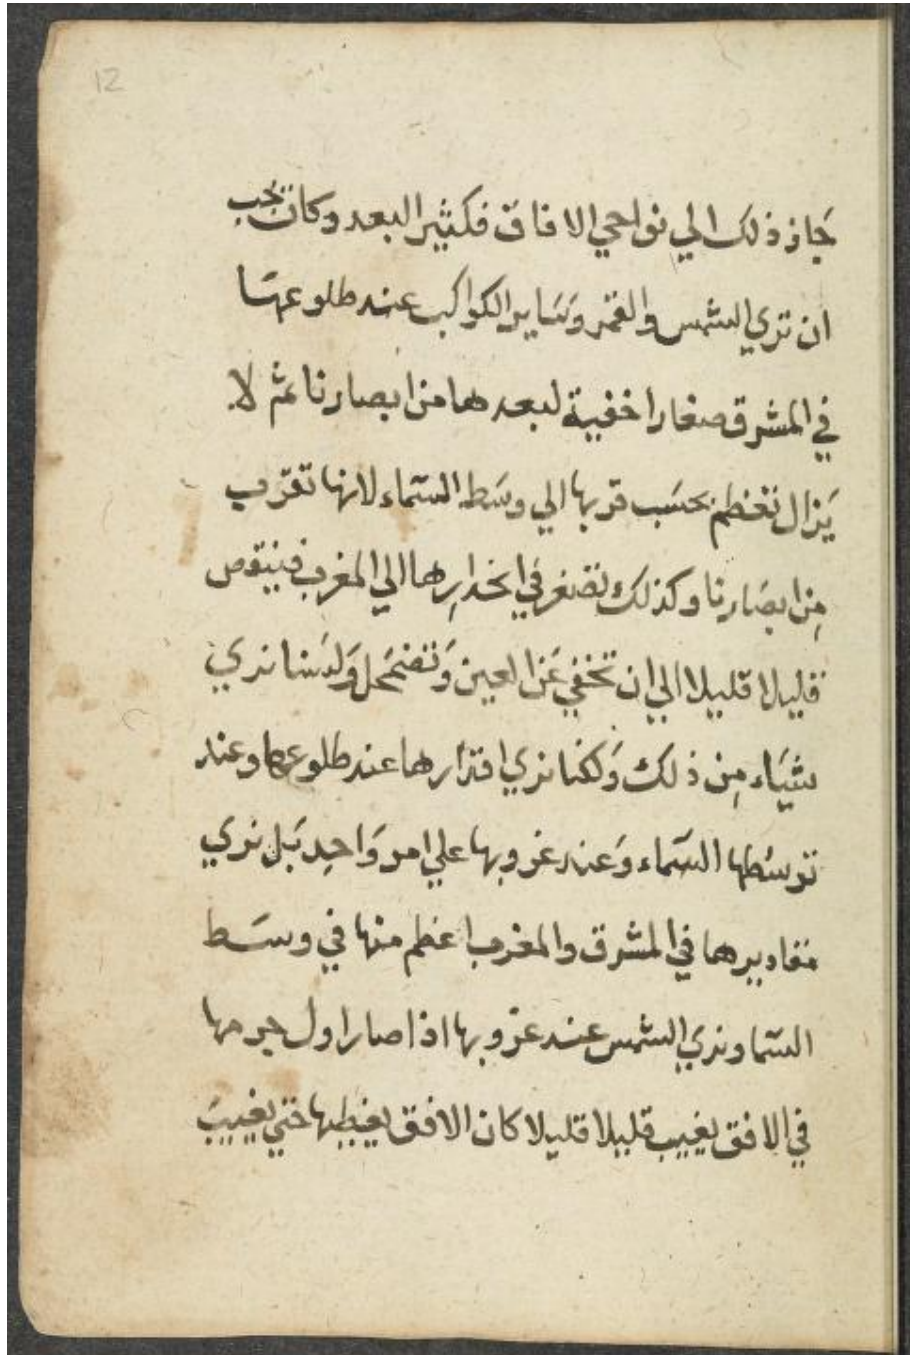 12
جَاز ذلك الي نواحي الافاق فكثير البعد وكان يجب
ان تري الشمس والقمر وسَاير الكواكب عند طلوعهَا
في المشرق صغارا خفية لبعدها من ابصارنا ثم لا
يَزال تعظم بحسَب قربها الي وسَط السمَاء لانها تقرب
مِن ابصَارنا وكذلك تصغر في انحدارِها الي المغرب فينقص
قليلا قليلا الي ان تخفي عَن العين وَتضمحل وَلسَنا نري
شيَاء مِن ذلك وَلكنا نري اقدارها عند طلوعها وعند
توسُطها السمَاء وَعند غروبها علي امر وَاحِد بَل نري
مقاديرها في المشرق والمغرب اعظم منها في وسَط
السَما ونري الشمس عند غروبها اذا صار اول جرمها
في الافق يغيب قليلا قليلا كان الافق يغطيها حتي يغيبَ